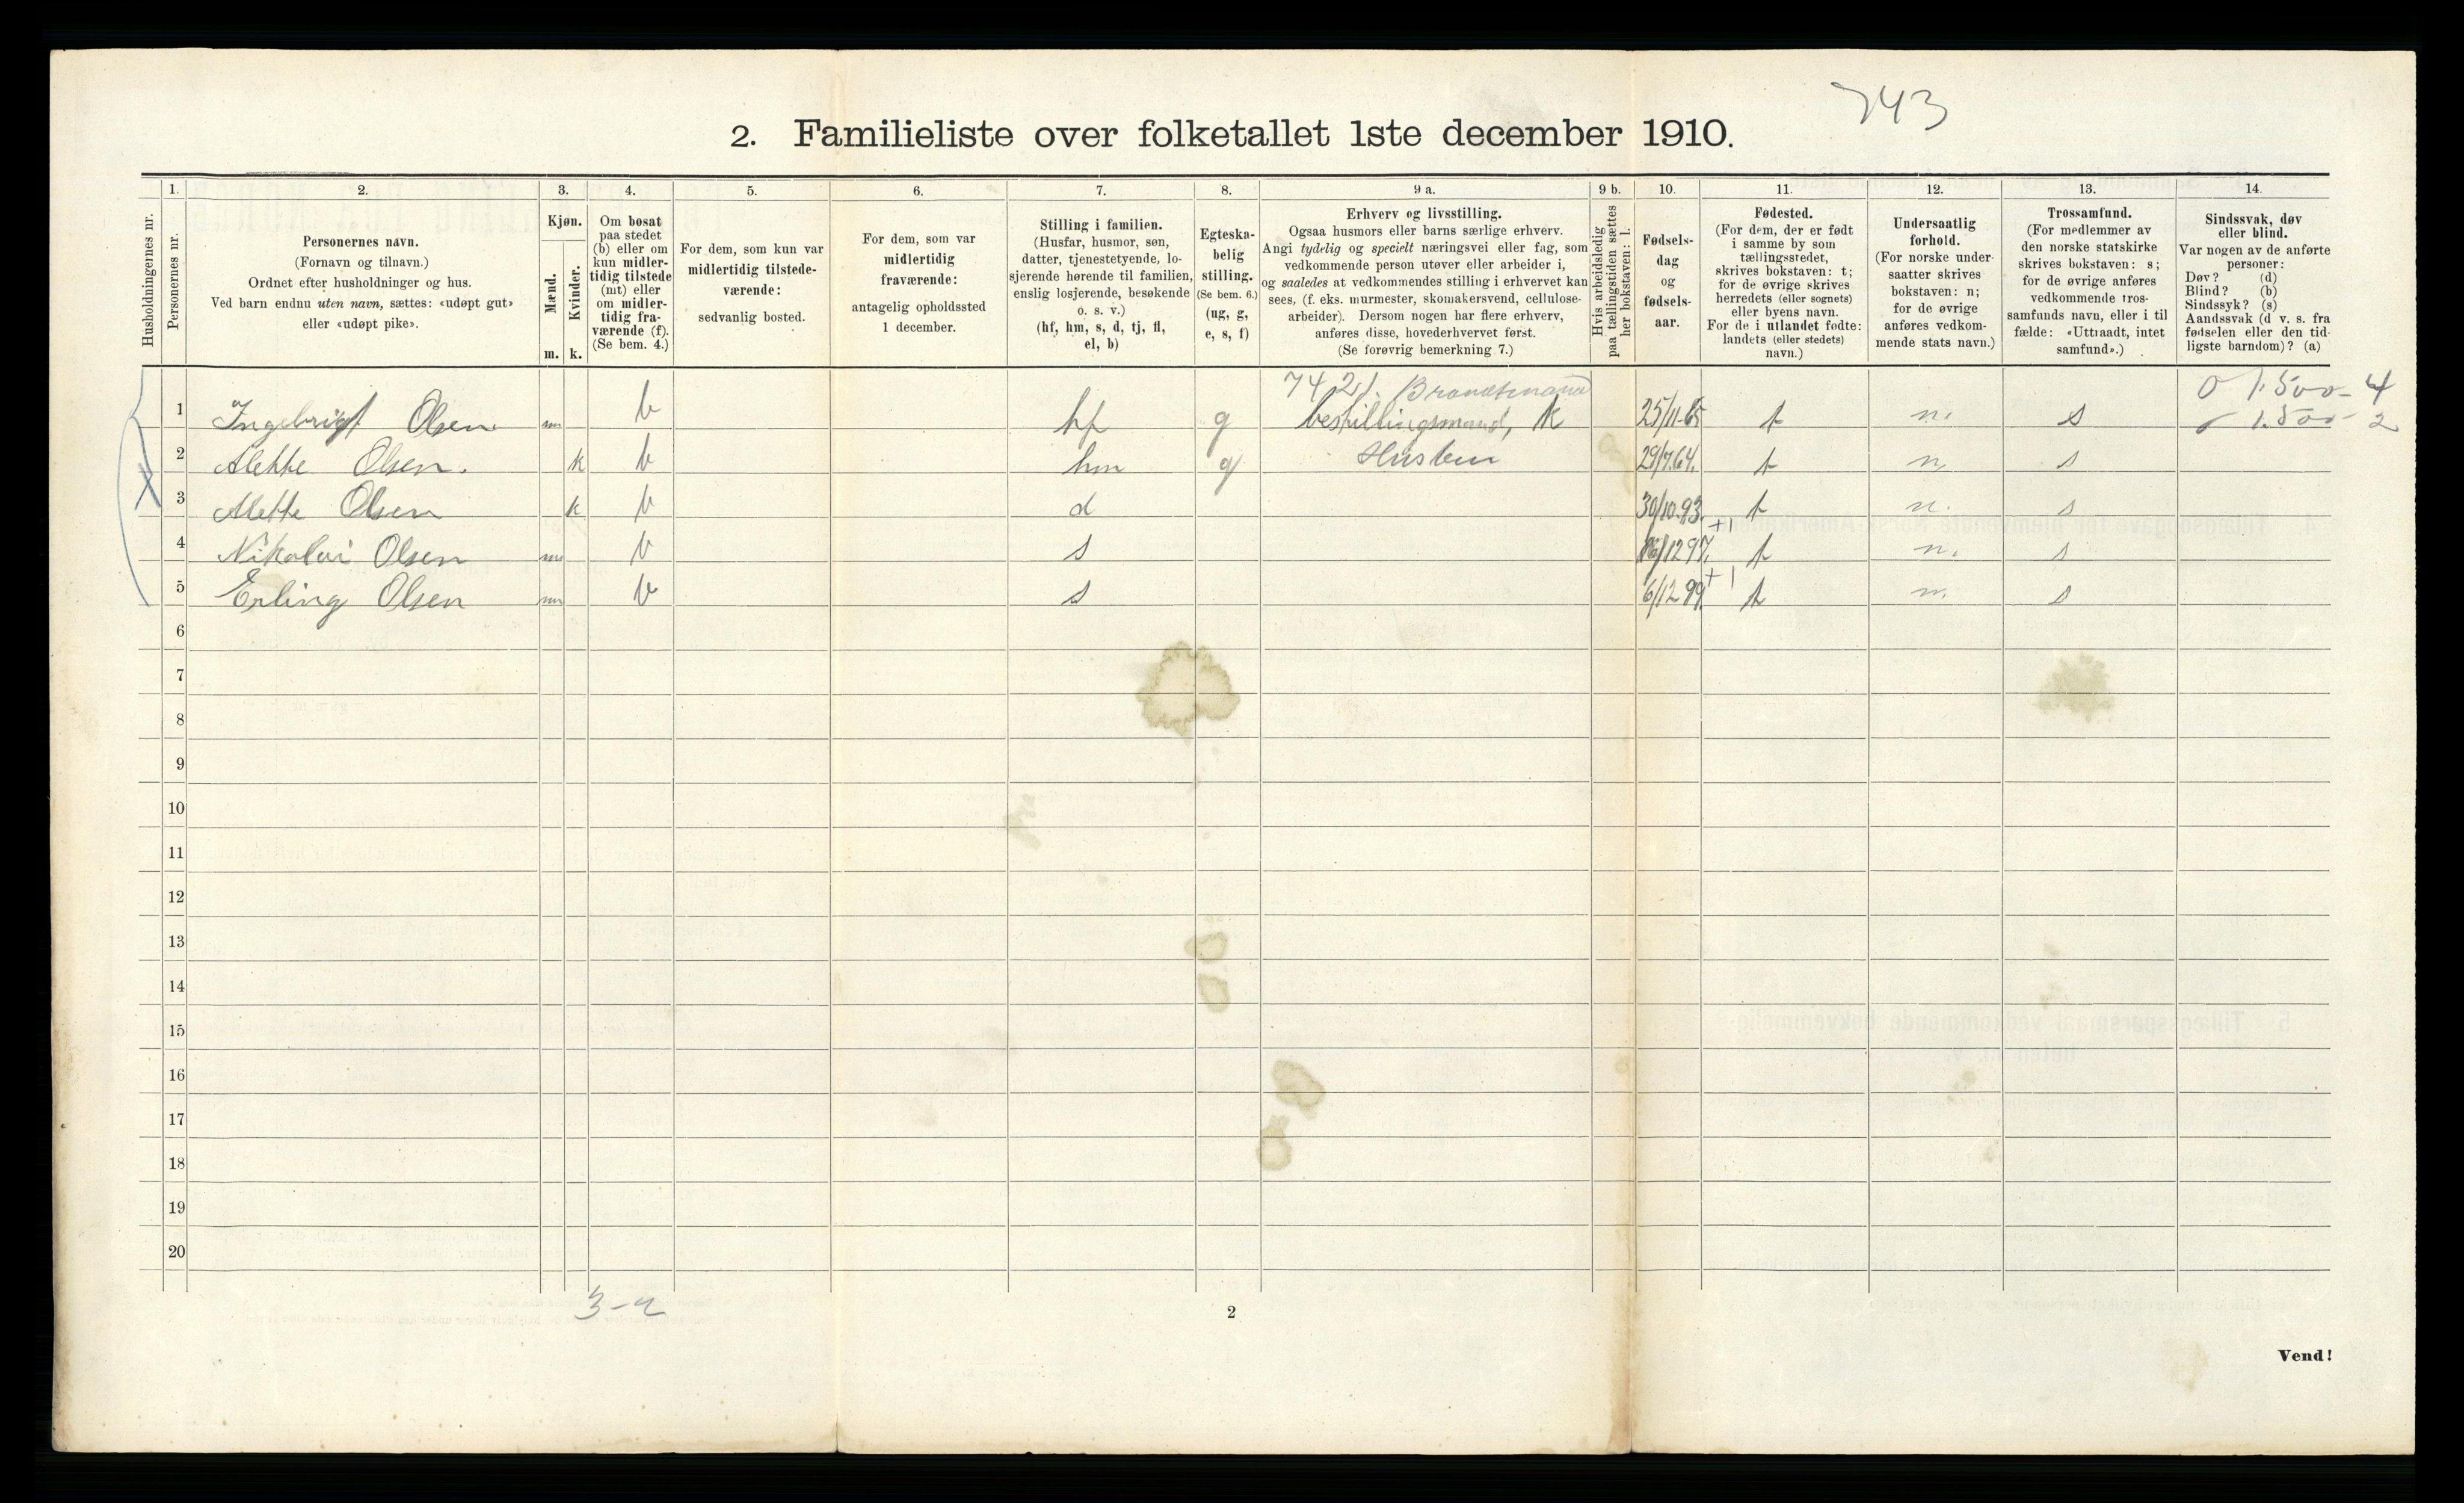 743
2. Familieliste over folketallet 1ste december 1910.
Husholdningernes nr.
1.
Personernes nr.
2.
Personernes navn.
(Fornavn og tilnavn.)
Ordnet efter husholdninger og hus.
Ved barn endnu uten navn, sættes: «udøpt gut»
eller «udøpt pike».
3.
Kjøn.
Mænd.
Kvinder.
m. k.
4.
Om bosat
paa stedet
(b) eller om
kun midler-
tidig tilstede
(mt) eller
om midler-
tidig fra-
værende (f).
(Se bem. 4.)
5.
For dem, som kun var
midlertidig tilstede-
værende:
sedvanlig bosted.
6.
For dem, som var
midlertidig
fraværende:
antagelig opholdssted
1 december.
7.
Stilling i familien.
(Husfar, husmor, søn,
datter, tjenestetyende, lo-
sjerende hørende til familien,
enslig losjerende, besøkende
o. s. v.)
(hf, hm, s, d, tj, fl,
el, b)
8.
Egteska-
belig
stilling.
(Se bem. 6.)
(ug, g,
e, s, f)
9 a.
Erhverv og livsstilling.
Ogsaa husmors eller barns særlige erhverv.
Angi tydelig og specielt næringsvei eller fag, som
vedkommende person utøver eller arbeider i,
og saaledes at vedkommendes stilling i erhvervet kan
sees, (f. eks. murmester, skomakersvend, cellulose-
arbeider). Dersom nogen har flere erhverv,
anføres disse, hovederhvervet først.
(Se forøvrig bemerkning 7.)
9 b.
Hvis arbeidsledig
paa tællingstiden sættes
her bokstaven: l.
10.
Fødsels-
dag
og
fødsels-
aar.
11.
Fødested.
(For dem, der er født
i samme by som
tællingsstedet,
skrives bokstaven: t;
for de øvrige skrives
herredets (eller sognets)
eller byens navn.
For de i utlandet fødte:
landets (eller stedets)
navn.)
12.
Undersaatlig
forhold.
(For norske under-
saatter skrives
bokstaven: n;
for de øvrige
anføres vedkom-
mende stats navn.)
13.
Trossamfund.
(For medlemmer av
den norske statskirke
skrives bokstaven: s;
for de øvrige anføres
vedkommende tros-
samfunds navn, eller i til
fælde: «Uttraadt, intet
samfund».)
14.
Sindssvak, døv
eller blind.
Var nogen av de anførte
personer:
Døv? (d)
Blind? (b)
Sindssyk? (s)
Aandssvak (d v. s. fra
fødselen eller den tid-
ligste barndom)? (a)
7421. Brandtmand 0 1.500-4
1 Ingebrigt Olsen m b hf g bestillingsmand, K 25/11-65 t n. s 1.500-2
2 Alette Olsen. k b hm g Husten 29/7.64. t n s
3 Mette Olsen k b d 30/10.93. t n. s
4 Nikolai Olsen m b s /12 97. +1 t n. s
5 Erling Olsen m b s 6/12 99. +1 t n. s
6
7
8
9
10
11
12
13
14
15
16
17
18
19
20
3-2
2
Vend!